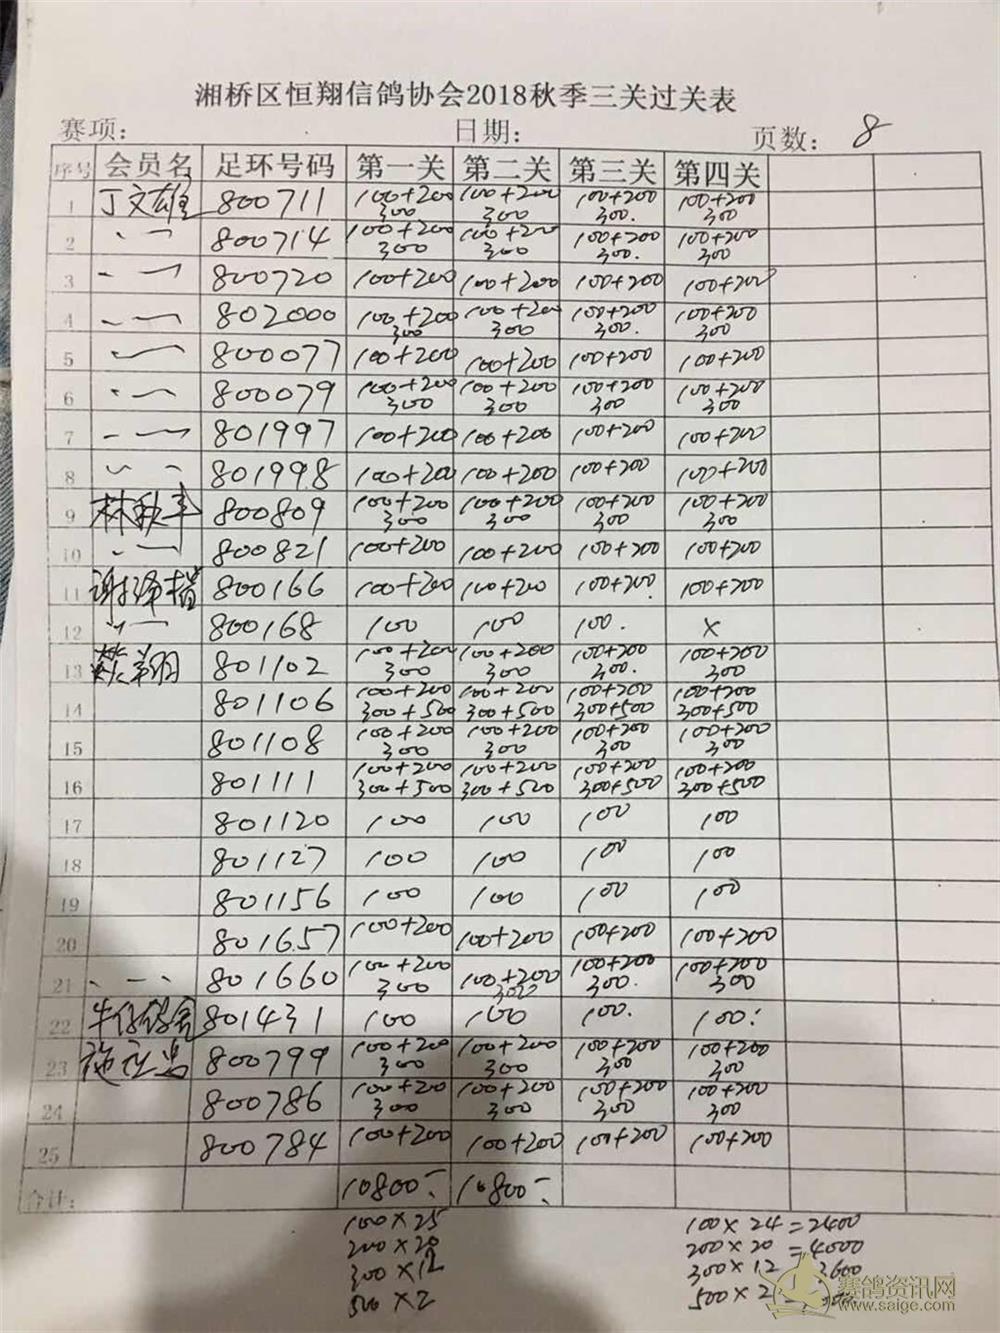 湘桥区恒翔信鸽协会2018秋季三关过关表
赛项: 日期: 页数: 8
序号 会员名 足环号码 第一关 第二关 第三关 第四关
1 丁文雄 800711 100+200 300 100+200 300 100+200 300. 100+200 300
2 800714 100+200 300 100+200 300 100+200 300. 100+200 300
3 800720 100+200 100+200 100+200 100+200
4 802000 100+200 300 100+200 300 100+200 300. 100+200 300
5 800077 100+200 100+200 100+200 100+200
6 800079 100+200 300 100+200 300 100+200 300 100+200 300
7 801997 100+200 100+200 100+200 100+200
8 801998 100+200 100+200 100+200 100+200
9 林秋丰 800809 100+200 300 100+200 300 100+200 300 100+200 300
10 800821 100+200 100+200 100+200 100+200
11 谢泽楷 800166 100+200 100+200 100+200. 100+200
12 800168 100 100 100. ×
13 翔 801102 100+200 300 100+200 300 100+200 300. 100+200 300
14 801106 100+200 300+500 100+200 300+500 100+200 300+500 100+200 300+500
15 801108 100+200 300 100+200 300 100+200 300 100+200 300
16 801111 100+200 300+500 100+200 300+500 100+200 300+500 100+200 300+500
17 801120 100 100 100 100
18 801127 100 100 100 100
19 801156 100 100 100 100
20 801657 100+200 100+200 100+200 100+200
21 801660 100+200 300 100+200 300 100+200 300. 100+200 300
22 牛仔鸽舍 801431 100 100 100. 100:
23 800799 100+200 300 100+200 300 100+200 300 100+200 300
24 800786 100+200 300 100+200 300 100+200 300 100+200 300
25 800784 100+200 100+200 100+200 100+200
合计: 10800 10800
100×25 100×24=2400
200×20 200×20=4000
300×12 300×12 3600
500×2 500×2
赛鸽资讯网
www.saige.com